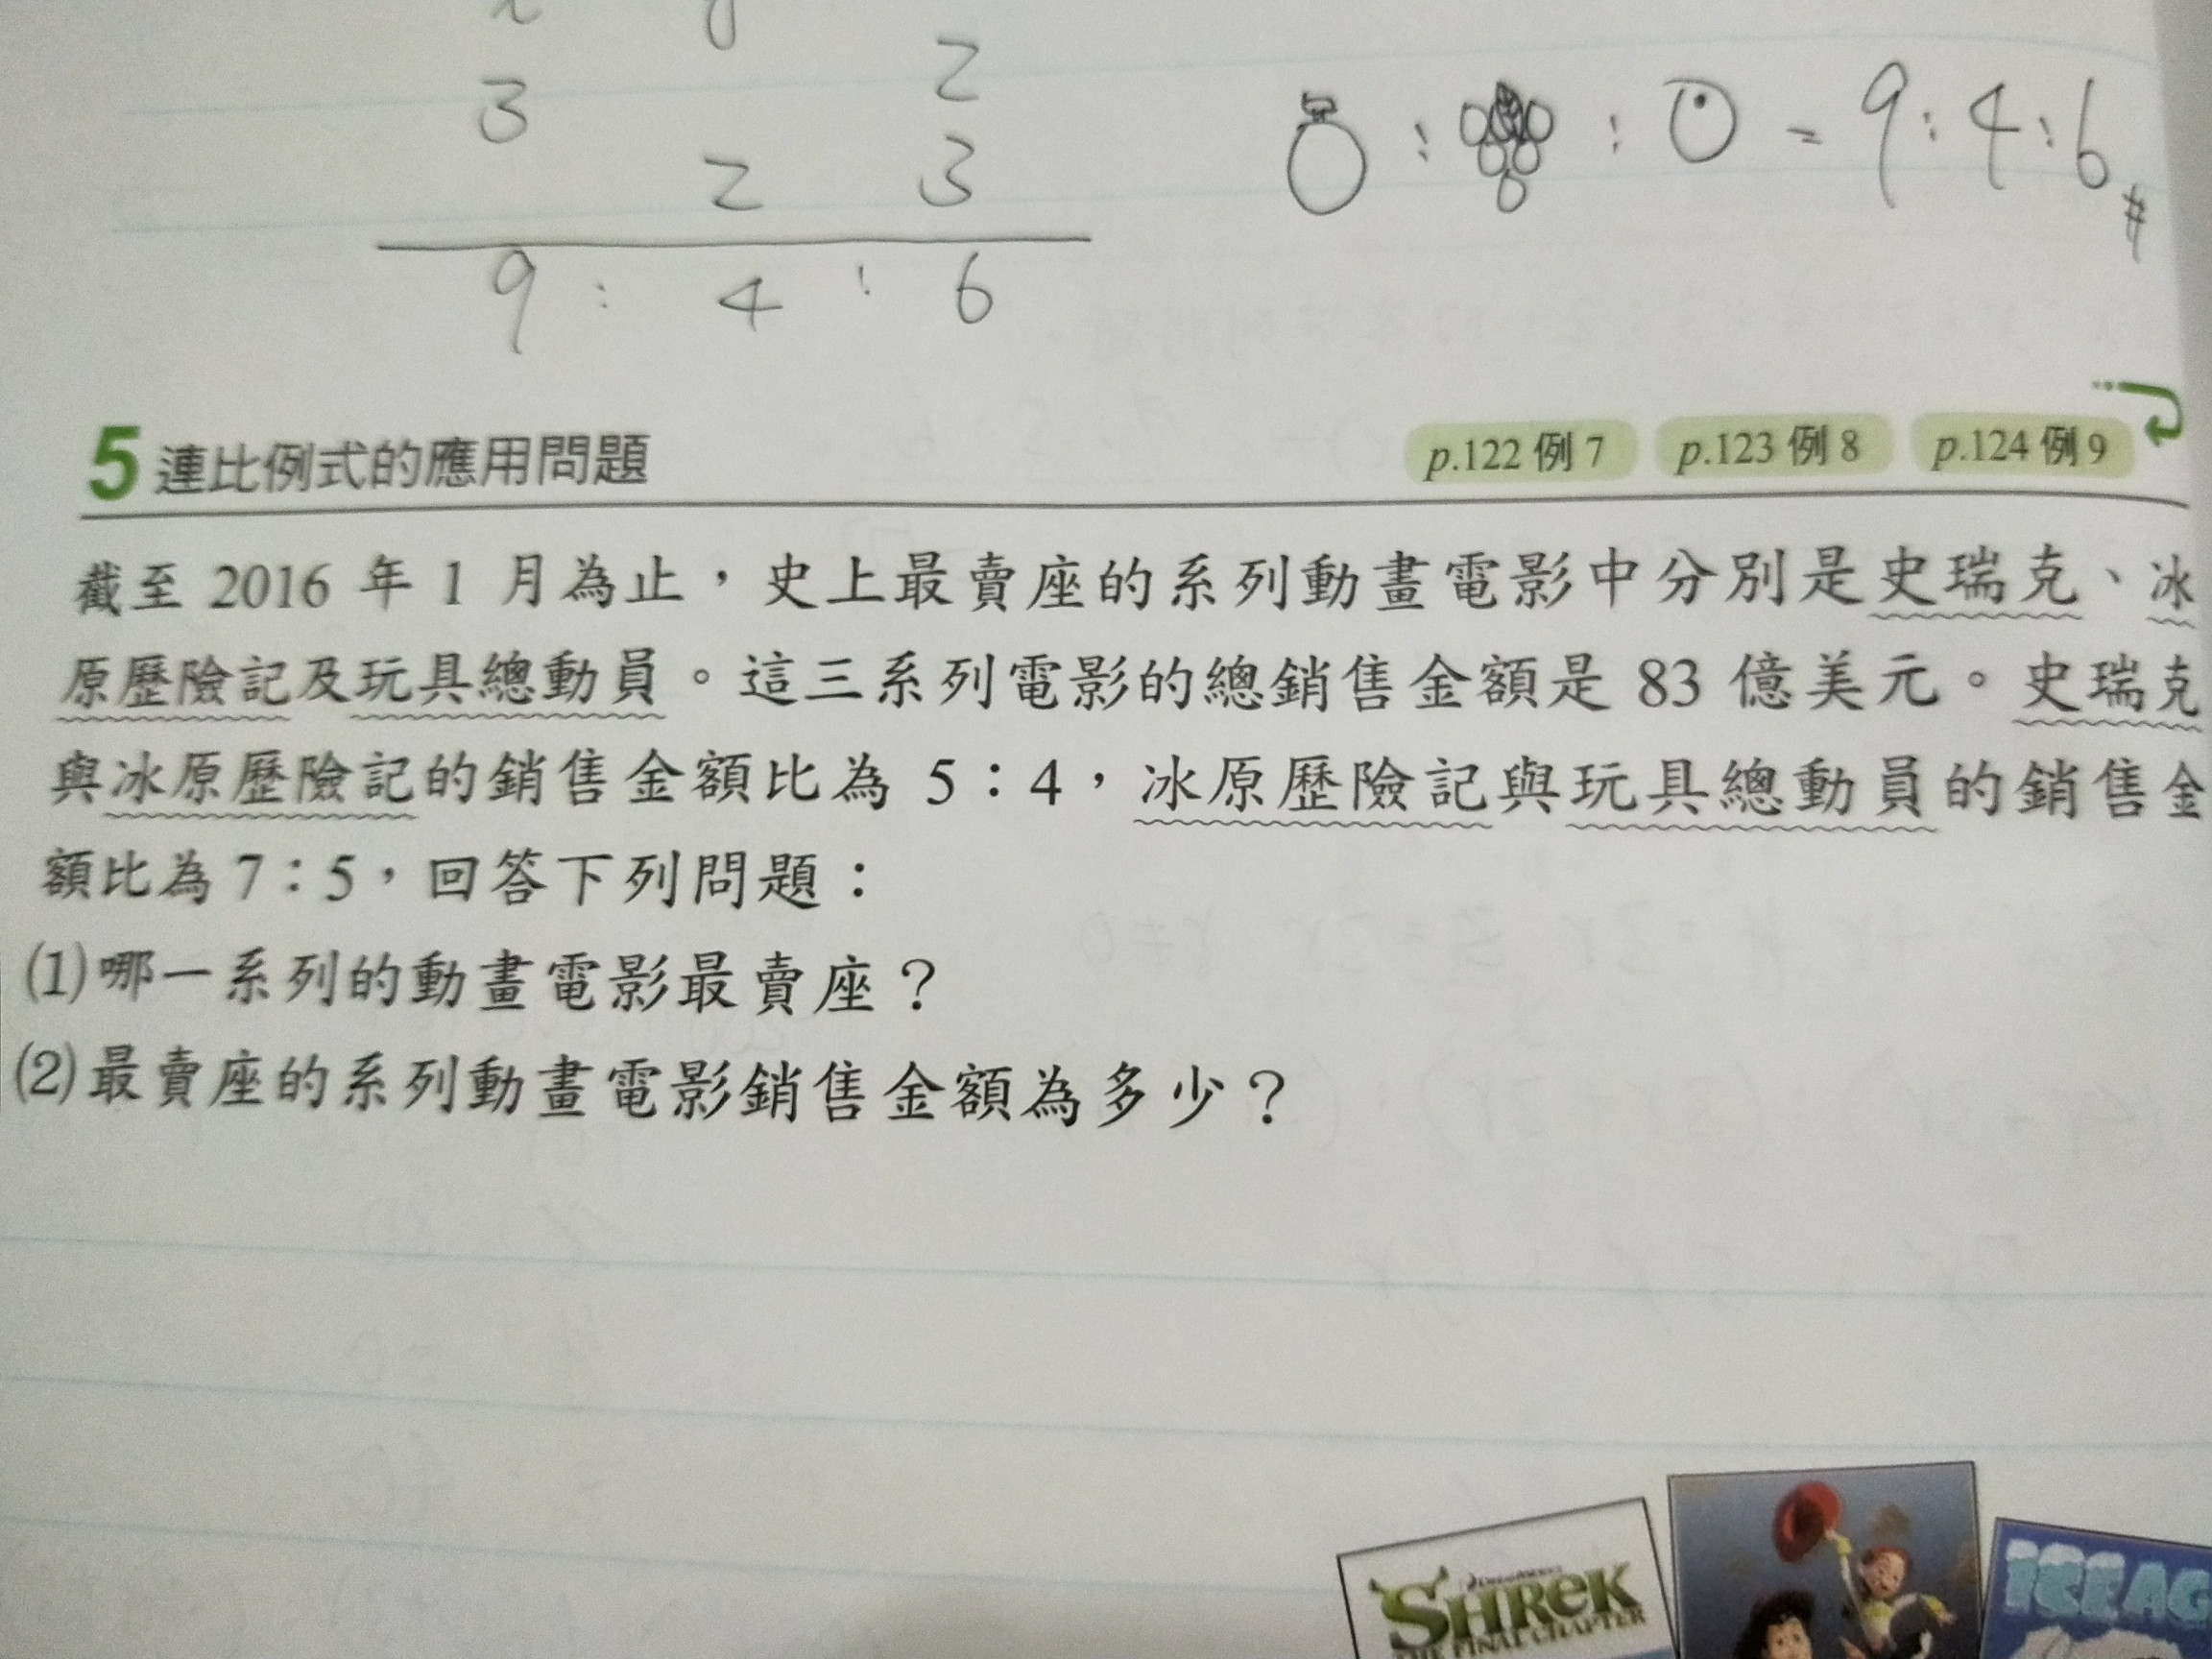 3 2
2 3
9 : 4 : 6
: : = 9:4:6#
5 連比例式的應用問題 p.122 例 7 p.123 例 8 p.124 例 9
截至 2016 年 1 月為止，史上最賣座的系列動畫電影中分別是史瑞克、冰
原歷險記及玩具總動員。這三系列電影的總銷售金額是 83 億美元。史瑞克
與冰原歷險記的銷售金額比為 5：4，冰原歷險記與玩具總動員的銷售金
額比為 7：5，回答下列問題：
(1)哪一系列的動畫電影最賣座？
(2)最賣座的系列動畫電影銷售金額為多少？
SHREK
THE FINAL CHAPTER
ICE AG